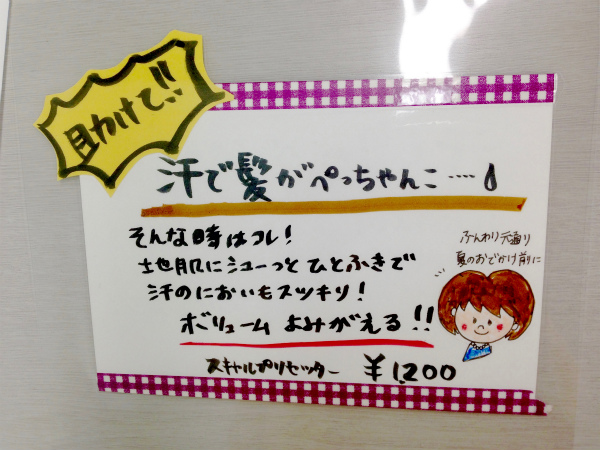 助けて!!
汗で髪がぺっちゃんこ‥‥
そんな時はコレ!
地肌にシューっとひとふきで
汗のにおいもスッキリ!
ボリュームよみがえる!!
ふんわり元通り
夏のおでかけ前に
スキャルプリセッター ¥1,200